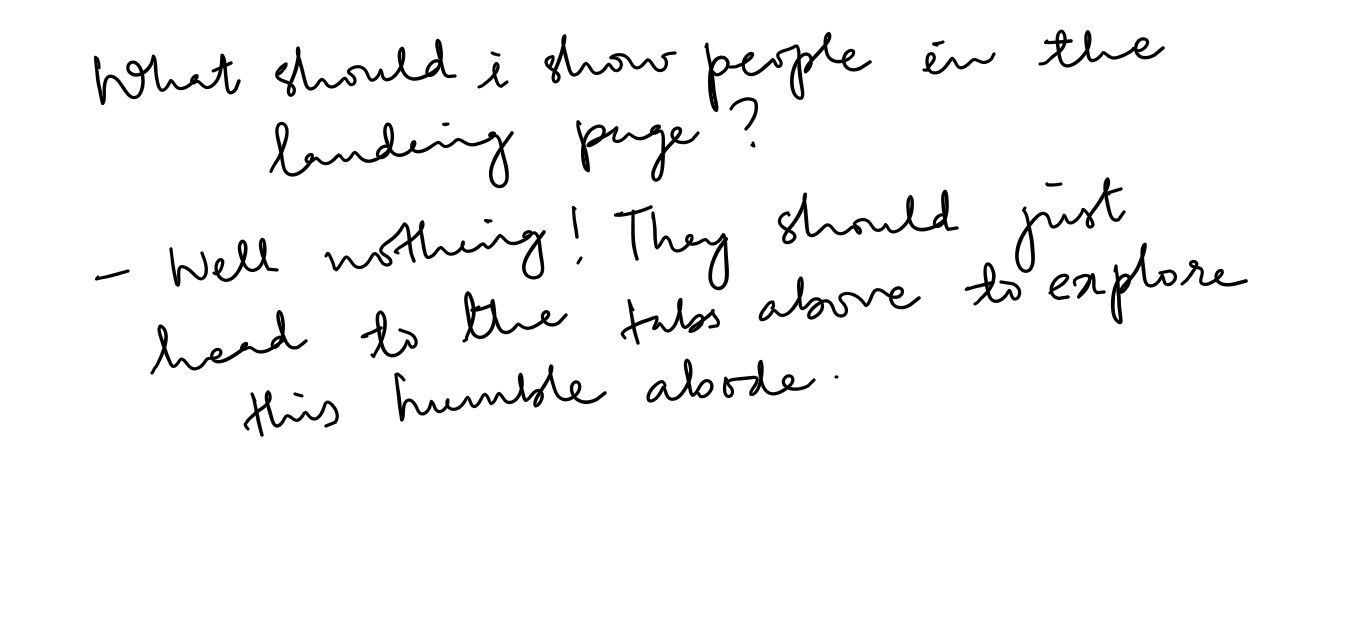 What should i show people in the
landing page?
- Well nothing! They should just
head to the tabs above to explore
this humble abode.